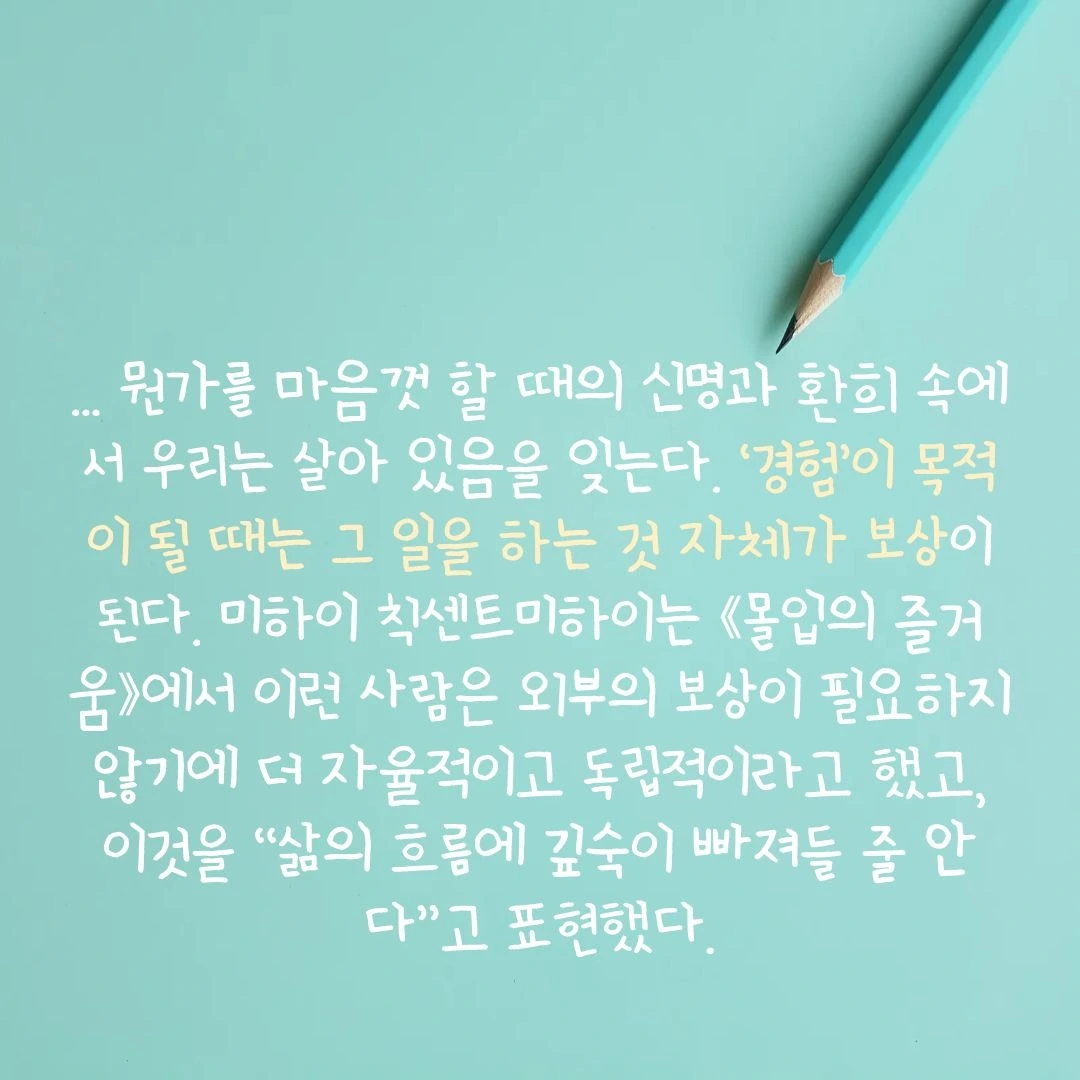 ... 뭔가를 마음껏 할 때의 신명과 환희 속에
서 우리는 살아 있음을 잊는다. ‘경험’이 목적
이 될 때는 그 일을 하는 것 자체가 보상이
된다. 미하이 칙센트미하이는 《몰입의 즐거
움》에서 이런 사람은 외부의 보상이 필요하지
않기에 더 자율적이고 독립적이라고 했고,
이것을 “삶의 흐름에 깊숙이 빠져들 줄 안
다”고 표현했다.